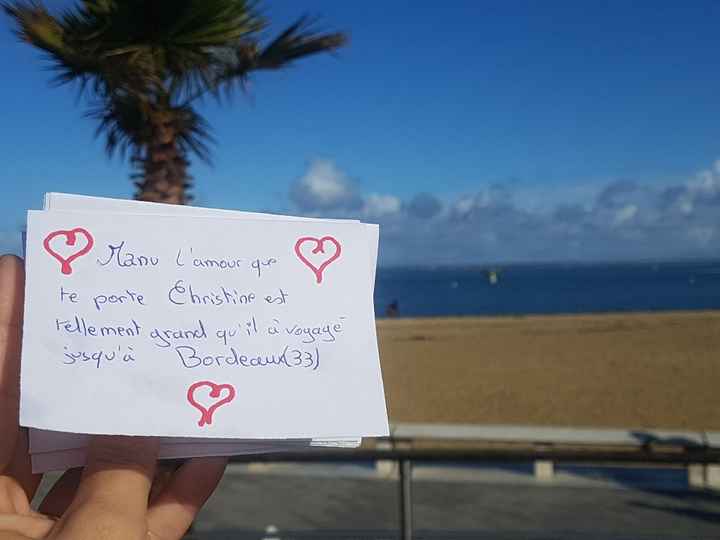 Manu l'amour que
te porte Christine est
tellement grand qu'il à voyagé
jusqu'à Bordeaux(33)